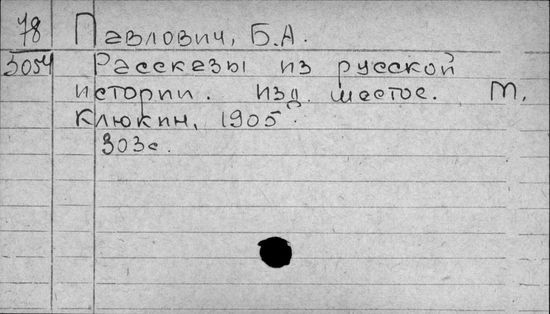 78 Павлович, Б.А.
3054 Рассказы из русской
истории. изд. шестое. М.
Клюкин, 1905.
303с.